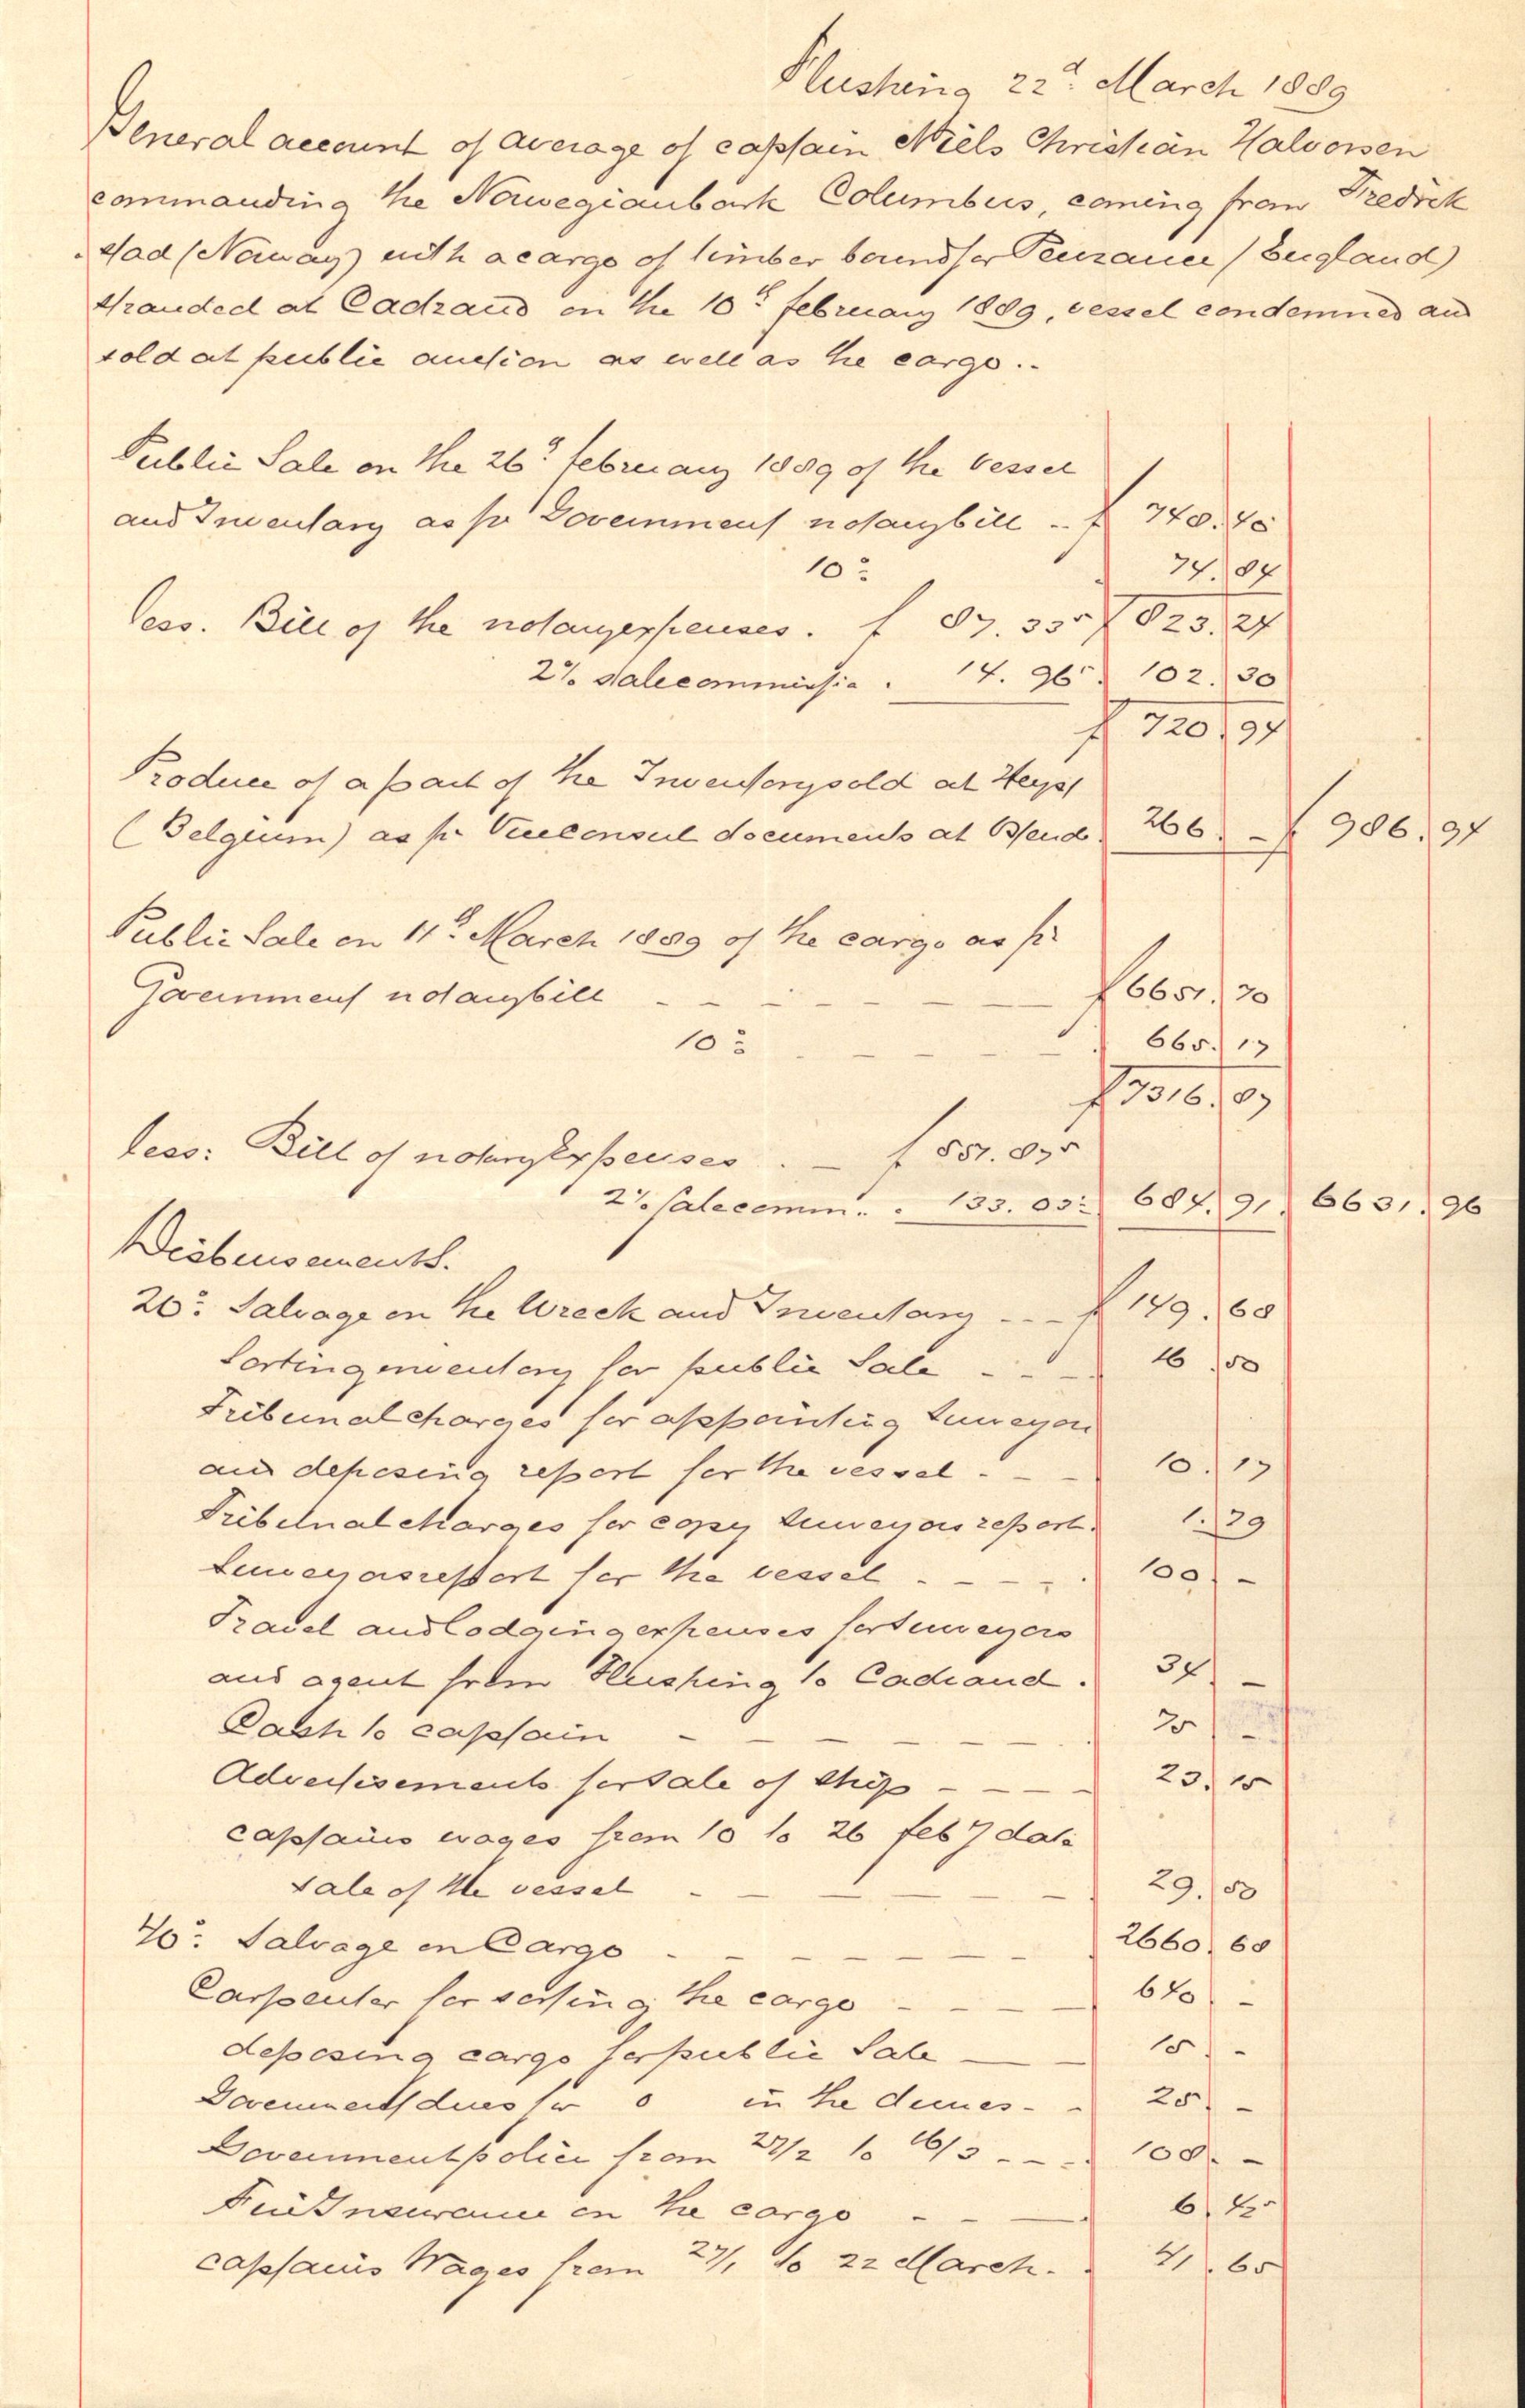 Flushing 22d March 1889
General account of average of captain Niels Christian Halvorsen
commanding the Norwegianbark Columbus, coming from Fredrik
stad (Norway) with a cargo of timber boundfor Penzance (England)
stranded at Cadzand on the 10th february 1889, vessel condemned and
sold at public auction as well as the cargo.
Public Sale on the 26th february 1889 of the vessel
and Inventary as pr Government notarybill .. f 748.40
10% 74.84
less. Bill of the notaryexpenses. f 87.335 f 823.24
2% salecommissio. 14.965 102.30
f 720.94
Produce of a part of the Inventory sold at Heyst
(Belgium) as pr Viceconsul documents at Ostend. 266. - f 986.94
Public Sale on 11th March 1889 of the cargo as pr
Government notarybill - - - f 6651.70
10% - - - 665.17
f 7316.87
less: Bill of notaryexpenses . - f 551.875
2% Salecomm. . 133.035 684.91 6631.96
Disbursements.
20% Salvage on the Wreck and Inventary - - - f 149.68
Sorting inventory for public Sale - - - 16.50
Tribunalcharges for appointing surveyors
and deposing report for the vessel . - - 10.17
Tribunalcharges for copy surveyors report. 1.29
Surveyorsreport for the vessel . - - - 100. -
Travel and lodging expenses for surveyors
and agent from Flushing to Cadzand. 34. -
Cash to captain - - - 75. -
Advertisements for sale of ship - - - 23.15
captains wages from 10 to 26 feby date
sale of the vessel - - - 29.50
40% Salvage on Cargo - - - 2660.68
Carpenter for sorting the cargo - - - 640. -
deposing cargo for public Sale - - 15. -
Governmentsdues for o in the dunes - - 25. -
Governmentpolice from 27/2 to 16/3 - - - 108. -
Fire Insurance on the cargo - - - 6.425
captains Wages from 27/2 to 22 March. 41.65